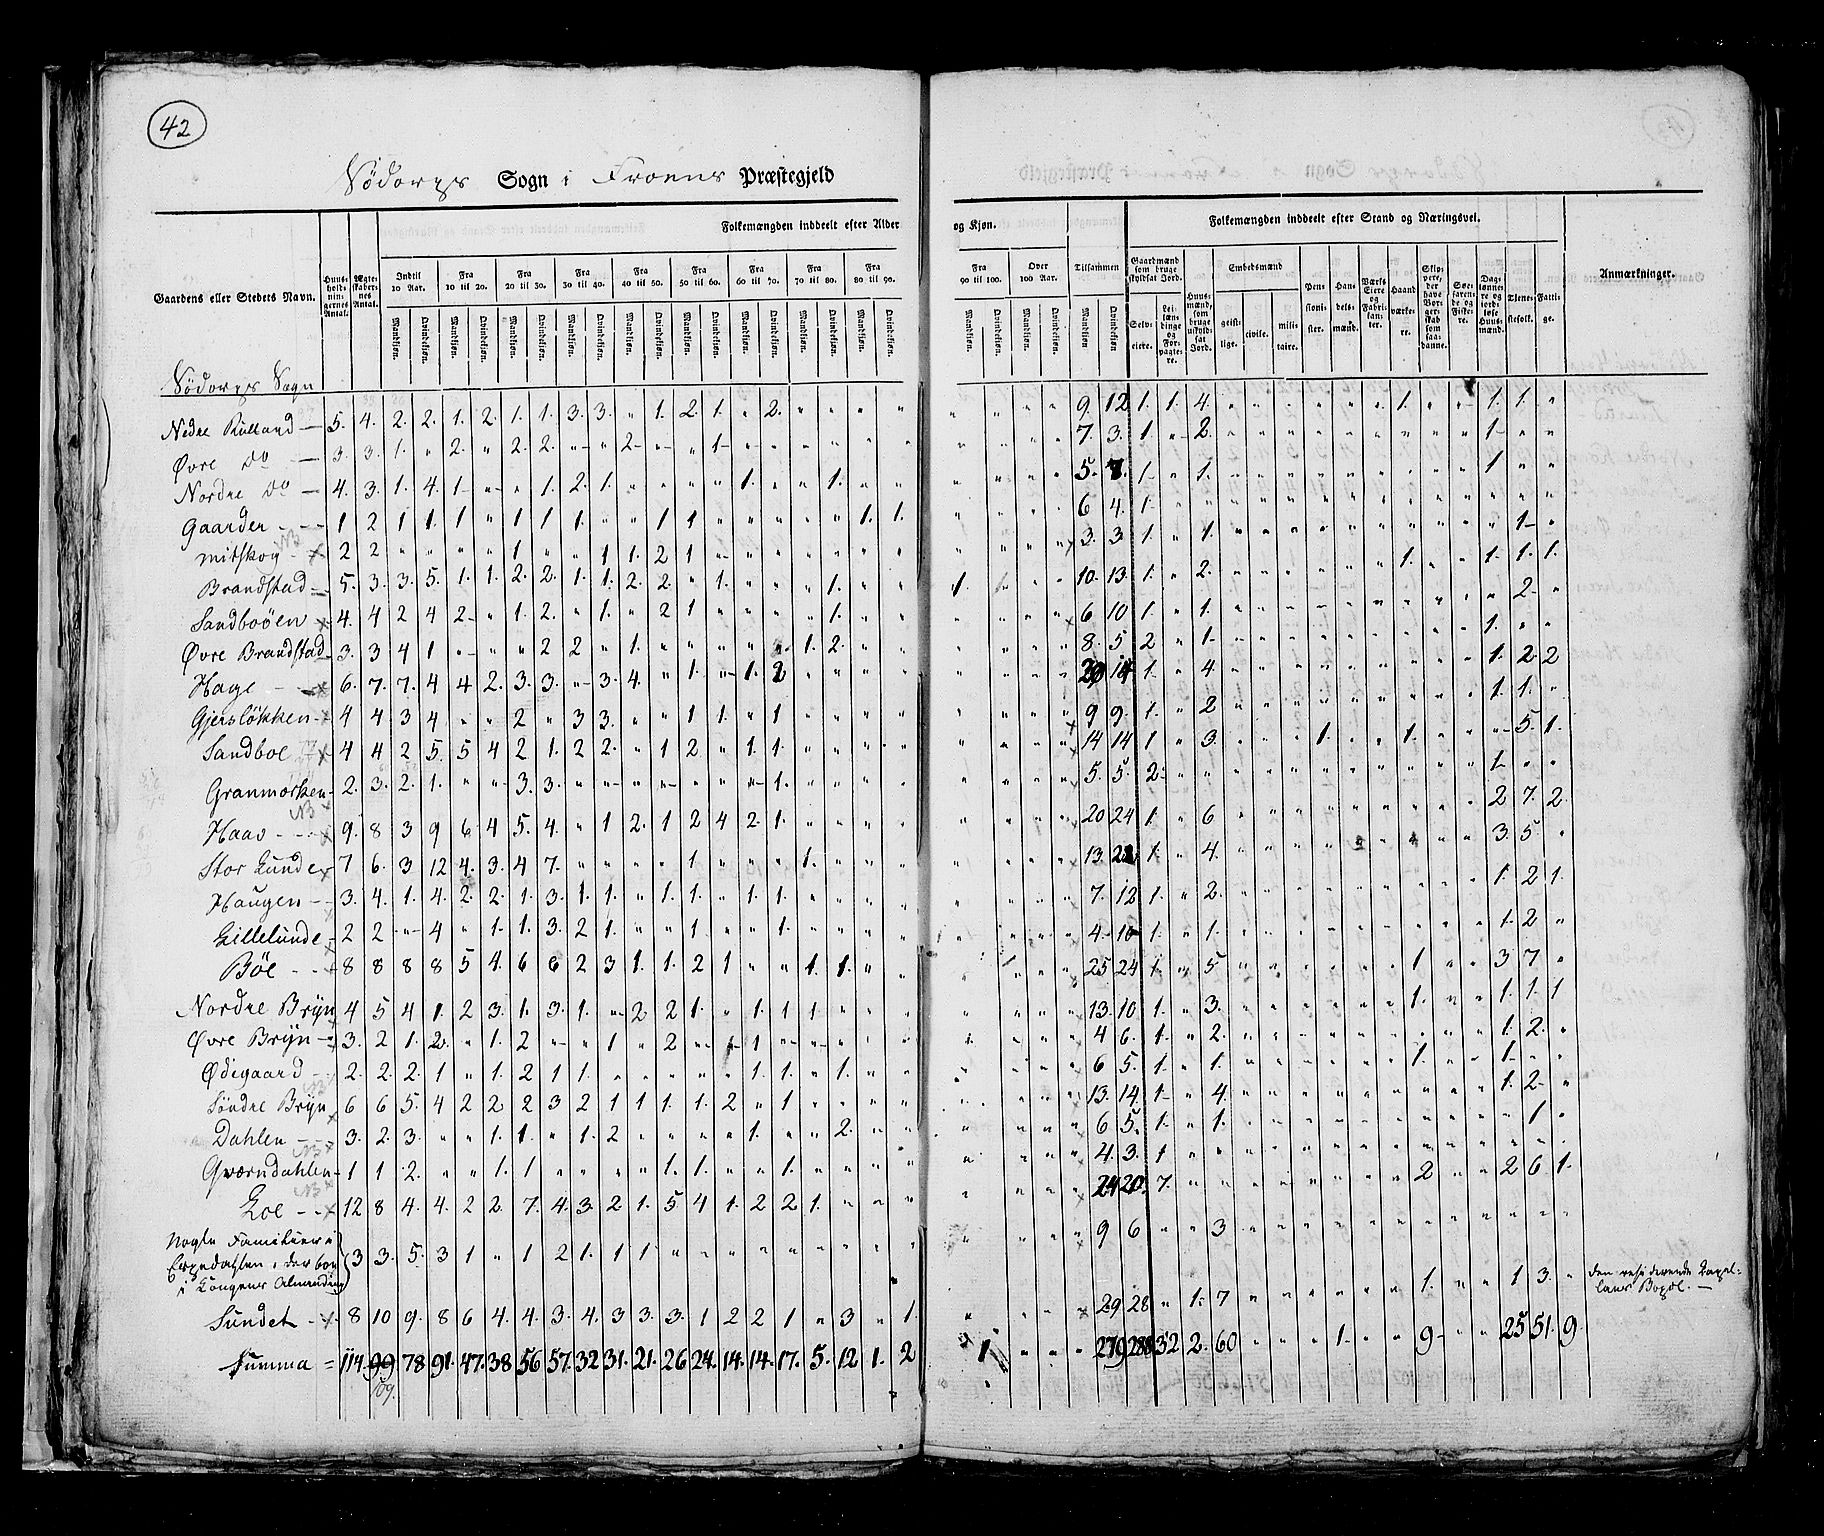 42
Sogn i Froens Præstegjeld
Folkemængden inddeelt efter Alder og Kjøn.
Folkemængden inddeelt efter Stand og Næringsvei.
Gaardens eller Stedets Navn.
Huusholdningernes Antal.
Ægteskabernes Antal.
Indtil 10 Aar.
Fra 10 til 20.
Fra 20 til 30.
Fra 30 til 40.
Fra 40 til 50.
Fra 50 til 60.
Fra 60 til 70.
Fra 70 til 80.
Fra 80 til 90.
Fra 90 til 100.
Over 100 Aar.
Tilsammen
Mandkiøn. Qvindekiøn.
Gaardmænd som bruge skyldsat Jord.
Selveiere.
Leilændinge og Forpagtere.
Huusmænd, som bruge uskyldsat Jord.
Embedsmænd
geistlige. civile. militaire.
Pensionister.
Handelsmænd.
Værks Eiere og Fabrikanter.
Haandværkere.
Søefarende og Fiskere.
Daglønnere og jordløse Huusmænd.
Tjenestefolk.
Fattige.
Anmærkninger.
Sogn
Nedre 5. 4. 2. 2. 1. 2. 1. 1. 3. 3. " 1. 2. 1. " 2. " " " " 9. 12 1. 1. 4. 1. 1. 1.
Øvre Do 3. 3. 1. " 2. " 2. 2. " " 2 " " 1 7. 3. 1. " 2. 1
Nordre Do 4. 3. 1. 4. 1 " " 1. 2. 1. " " " " 1. " " 1. " " 5. 1 " 1. 1
Gaarden 1 2 1 1. 1 " 1 1 1. " " 1 1 " " " " " 1. 1. 6 4. 1.
Mitskog 2 2 " " " " 1 " " 1 1. 2 1 3. 3. 1. " 1. 1
Brandstad 5. 3. 3. 5. 1. 1. 2. 2. 1. 1. 2. 2. " 1. " " " 1. " " 1. 10. 13. 1. " 2. 1. 1. 1. 1.
Sandboöen 4. 4 2 4 2 " 1. 2. " 1. " 2 1 " " " " 1. 6 10 1. " 1. 2.
Øvre Brandstad 3. 3 4 1 " " " 2 2 " 1. " " " " " 1. 2. 8. 5 2 " 1 1.
Hage 6. 7. 7. 4 4 2. 3. 3. " 3. 4. " 1. " 1. 2 1. " 4. 1. 2. 2
Gjersløkken 4 4 3 4 " " 2 " 3 3. " " 1 1. " 1 9 9. 1. " 2 1. 1.
Sandboe 4 4 2 5. 5 4 2 1. 2 2. " 1 2 " 1. 1. 14 14 1 " 3. 1. 1. 5. 1.
Granmorken 2. 3. 2. 1. " " 3. 3. " " " " " " " 1. 5. 5. 2. 1.
Haav 9. 8 3 9 6. 4 5. 4. " 1 2. 1 2 4 2. 1. 20 24 1. " 6 2 7. 2.
Stor Lunde 7 6. 3 12 4. 3. 4 7. " " " " 1. " " " 1. 13. 1. " 4. 3. 5.
Haugen 3. 4. 1. 4. 2. 2. 1. 3. 1. 1. " 1. 1. " 1. 1. 7. 12 1. " 2. 1. 2 1.
Lillelunde 2 2 " 4. " 1. 1. 3. 2 1. " " 1. " " 1. 4. 10 1. " 1. 1. 2
Böe 8 8 8 8 5 4. 6 6. 2 3 1. 1. 2 1 " " 1. 1. 25 24 1 " 5 1 3 7
Nordre Bryn 4 5 4 1. 2 3. 1. 3. 1. " 2 2 1. " 1. 1 1. 13. 10 1. " 3. 1. 1. 1. 1
Øvre Bryn 3. 2 1. 2. " 1. 2 " " 1 " 2 " " 1 4 6. 1. " 2. 1. 2.
Ødegaard 2. 2. 2. 1 " 1. 2 1 1. " " " " " 1. 1. " 1. 6 5. 1. " 1. 1. 1
Söndre Bryn 6 6 5. 4 2 2 2 3 2 1 1 1. 1. 2 " 1 13. 14. 1 " 4. 1. 2
Dahlen 3. 2. 3. " " 1. 1. " 1. 2 " " " " 1. " " 2. 6 5. 1. " 1. 1
Gværndahlen 1 1 2. " " 1. 1 " " " " 1. 1. " " 1. 4. 3. 1
Loe 12 8 4. 4. 2 2. 7. 4. 3. 2 1. 5 4 1. 2 2. 1. 24 20. 7. 2 2 6 1.
Nogle Familier i
der boe
i Kongens Almending 3 3. 5. 3 1 " 1 2 1. 1 1 9 6 " " 3
Sundet 8 10 9. 8 6 4. 4. 3. 4. 3 3. 3. 1 2 2 1 " 3 " 1. 29 28 " 1. 7 1. 1 3.
den residerende Capel-
lans
Summa = 114. 99 78 91. 47. 38 56 57. 32 31. 21. 26 24. 14. 14. 17. 5. 12 1. 2 1 279 288 32 2. 60 1. 9 25 51. 9.
109.